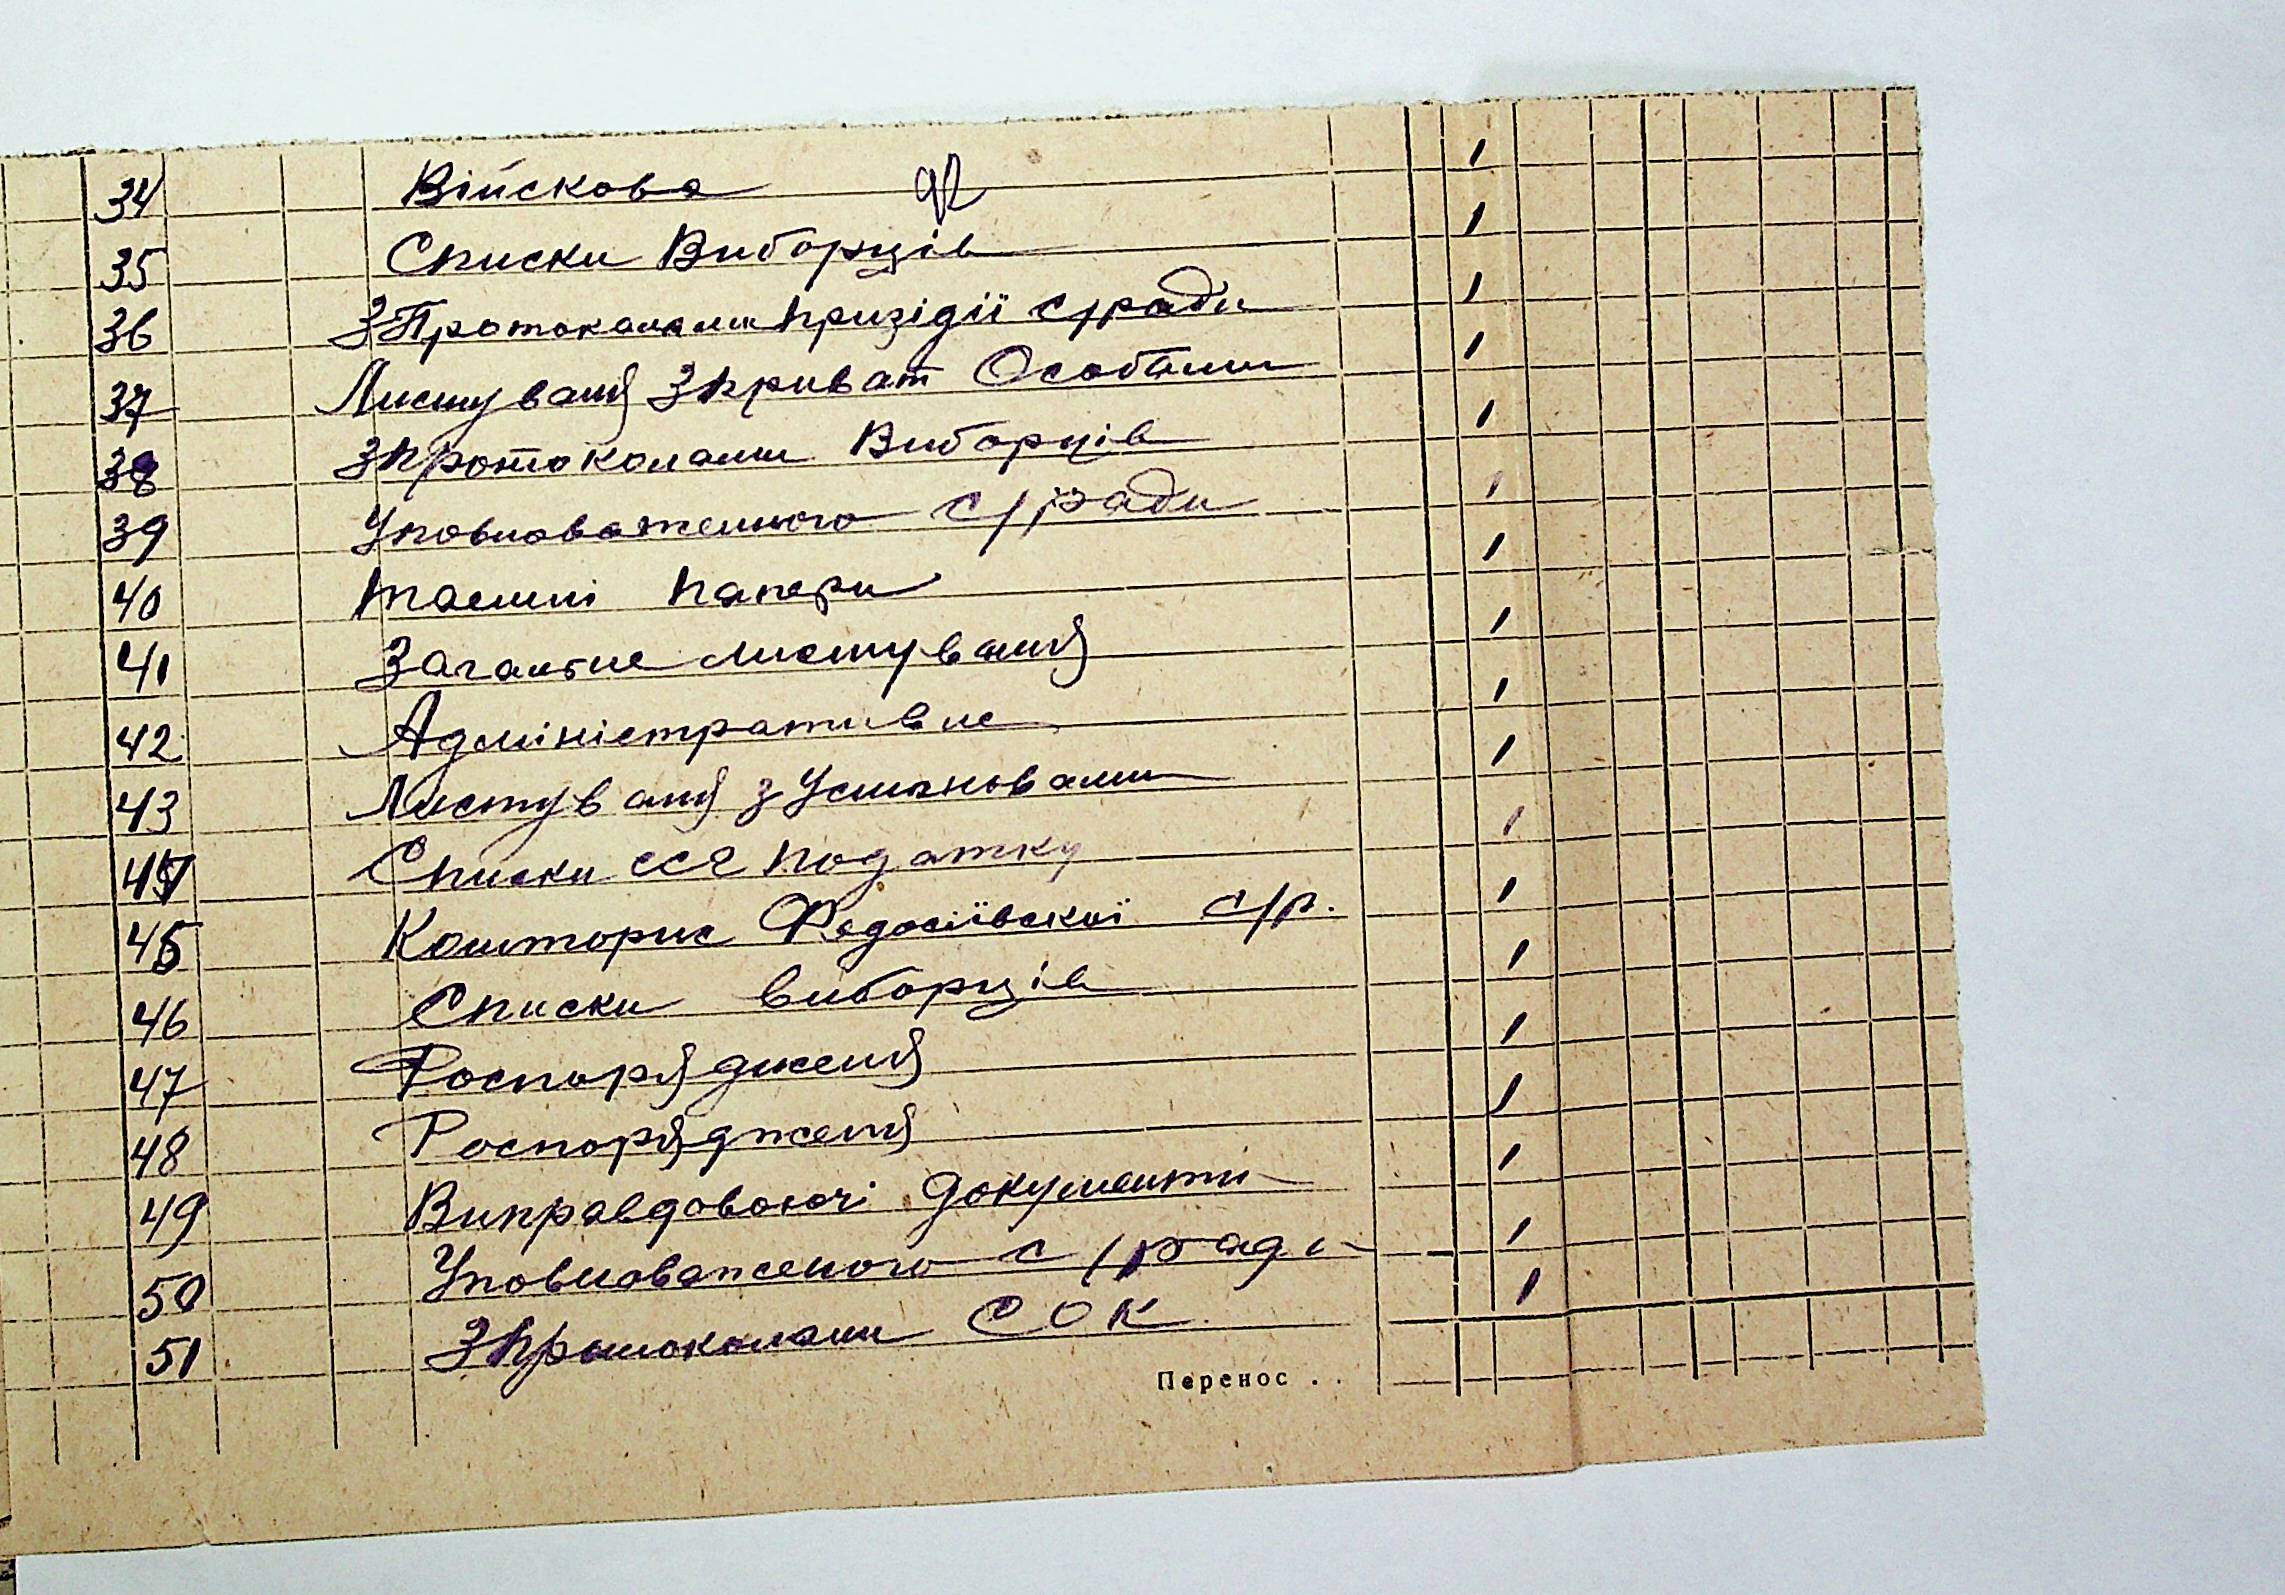 34 Війскова 92 1
35 Списки Виборців 1
36 З Протоколами призідії с/ради 1
37 Листуваня з приват Особами 1
38 з протоколами Виборців 1
39 Уповноваженного с/ради 1
40 таємні папери 1
41 Загальне листуваня 1
42 Адміністративне 1
43 Листуваня з Установами 1
44 Списки ССГ податку 1
45 Кошторис Федосіївскої с/р. 1
46 Списки виборців 1
47 Роспорядженя 1
48 Роспорядженя 1
49 Виправдовоючі документи 1
50 Уповноваженого с/ради 1
51 З протоколами СОК 1
Перенос . .